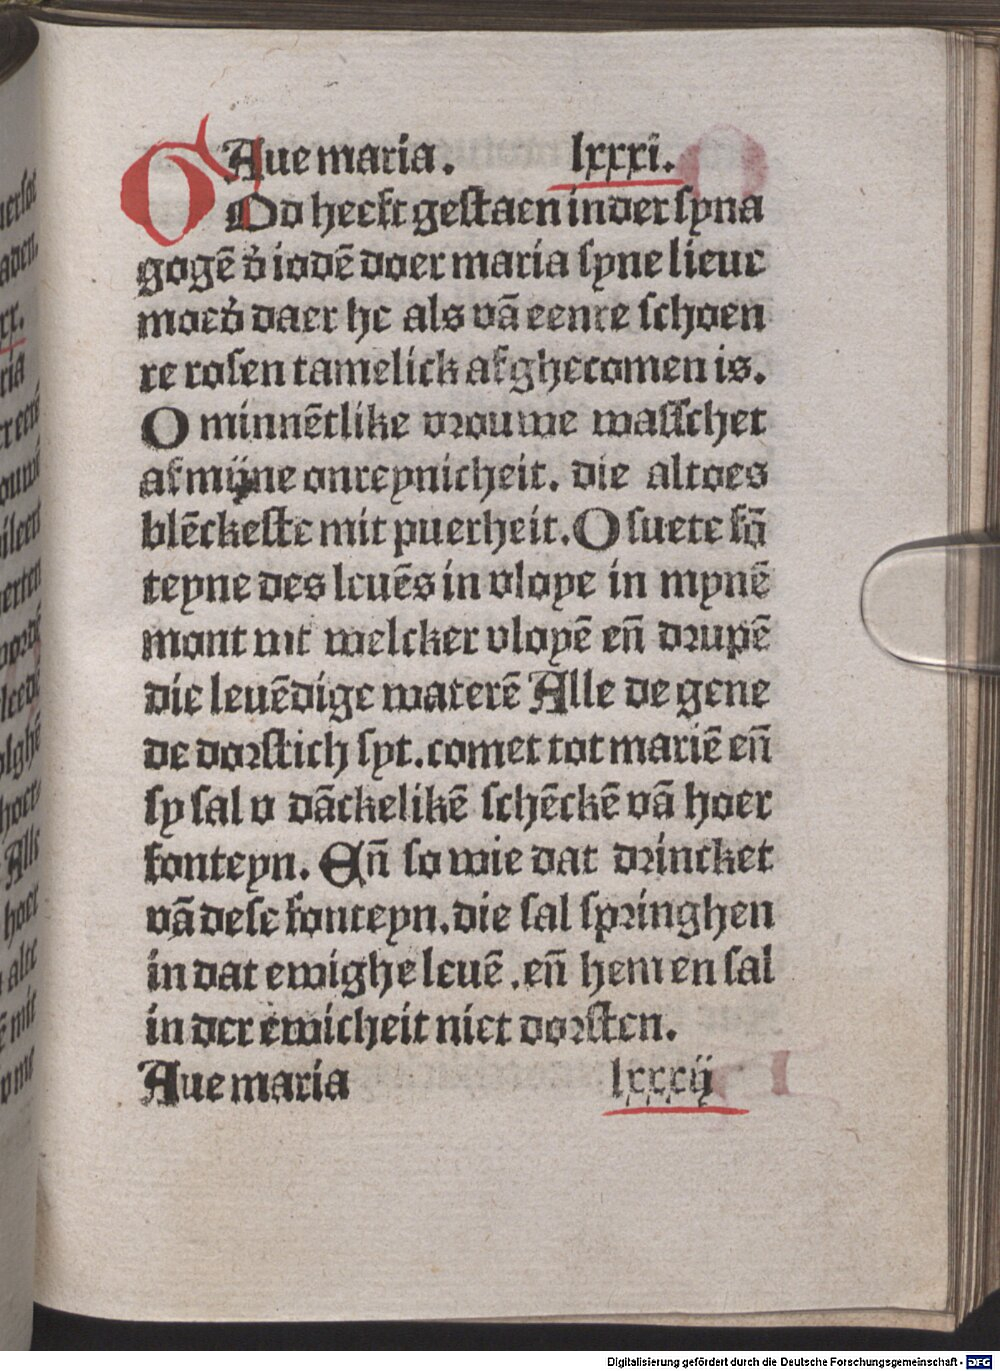 Aue maria. lxxxi.
God heeft gestaen in der syna
gogē d̾ iodē doer maria syne lieue
moed̾ daer he als vā eenre schoen
re rosen tamelick afghecomen is.
O minnētlike vrouwe wasschet
af mijne onreynicheit. die altoes
blēckeste mit puerheit. O suete fō
teyne des leuēs in vloye in mynē
mont wt welcker vloyē eñ drupē
die leuēdige waterē Alle de gene
de dorstich syt. comet tot mariē eñ
sy sal v dāckelikē schēckē vā hoer
fonteyn. Eñ so wie dat drincket
vā dese fonteyn. die sal springhen
in dat ewighe leuē. eñ hem en sal
in der ewicheit niet dorsten.
Aue maria lxxxij
Digitalisierung gefördert durch die Deutsche Forschungsgemeinschaft - DFG